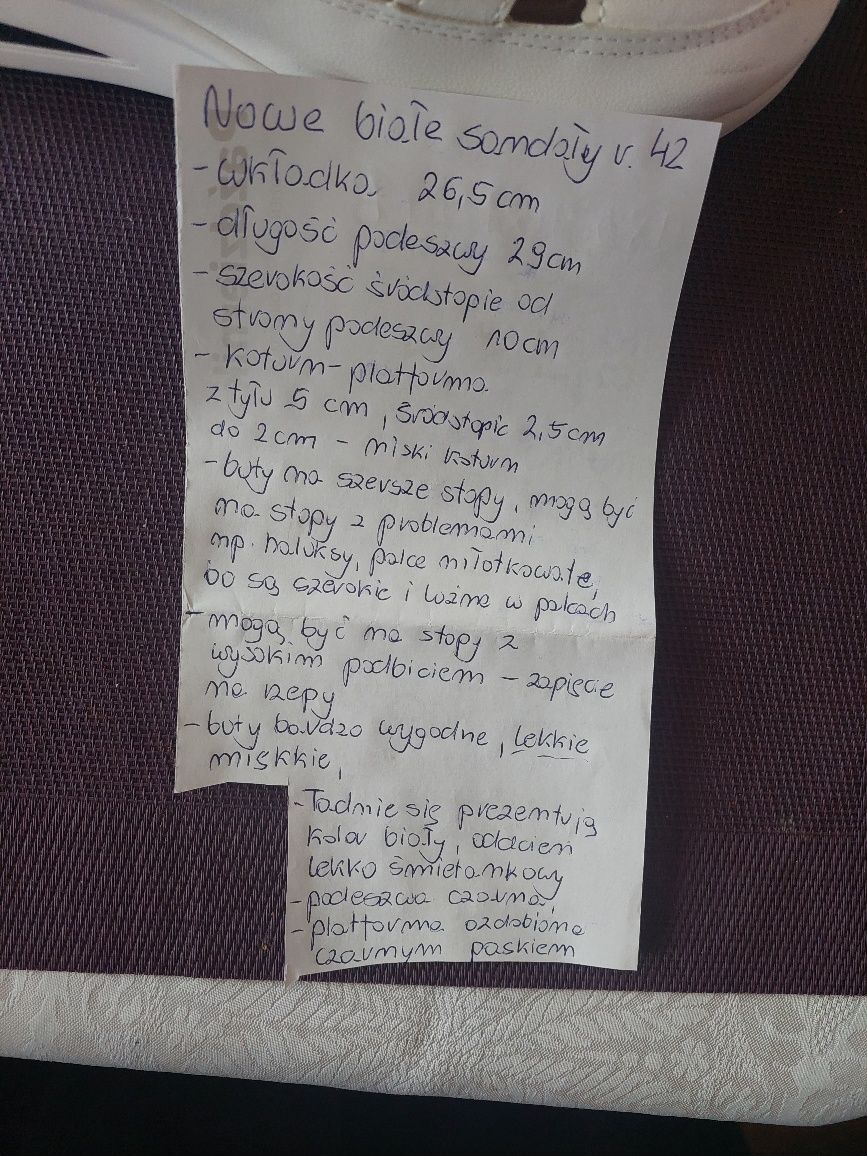 Nowe białe sandały r. 42
- wkładka 26,5 cm
- długość podeszwy 29 cm
- szerokość śródstopie od
strony podeszwy 10 cm
- koturn - platforma
z tyłu 5 cm, śródstopie 2,5 cm
do 2 cm - niski koturn
- buty na szersze stopy, mogą być
na stopy z problemami
np. haluksy, palce młotkowate,
bo są szerokie i luźne w palcach
- mogą być na stopy z
wysokim podbiciem - zapięcie
na rzepy
- buty bardzo wygodne, lekkie
miękkie,
- Ładnie się prezentują
kolor biały, odcień
lekko śmietankowy
- podeszwa czarna,
- platforma ozdobiona
czarnym paskiem